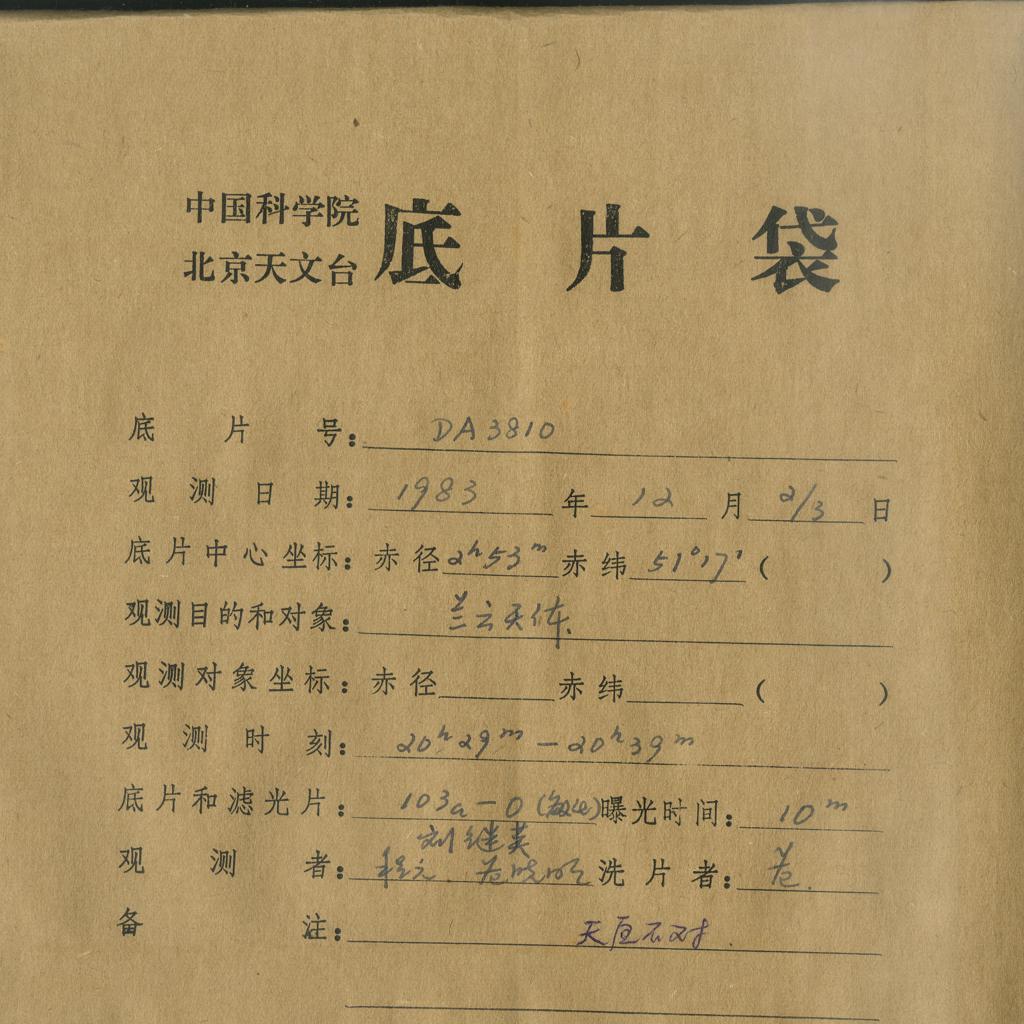 中国科学院
北京天文台
底片袋
底片号: DA3810
观测日期: 1983年12月2/3日
底片中心坐标: 赤径2h53m赤纬51°17'( )
观测目的和对象: 兰云天体
观测对象坐标: 赤径 赤纬 ( )
观测时刻: 20h29m—20h39m
底片和滤光片: 103a-O(敏化)曝光时间: 10m
刘继英
观测者: 程元. 洗片者:
备注: 天区不对.